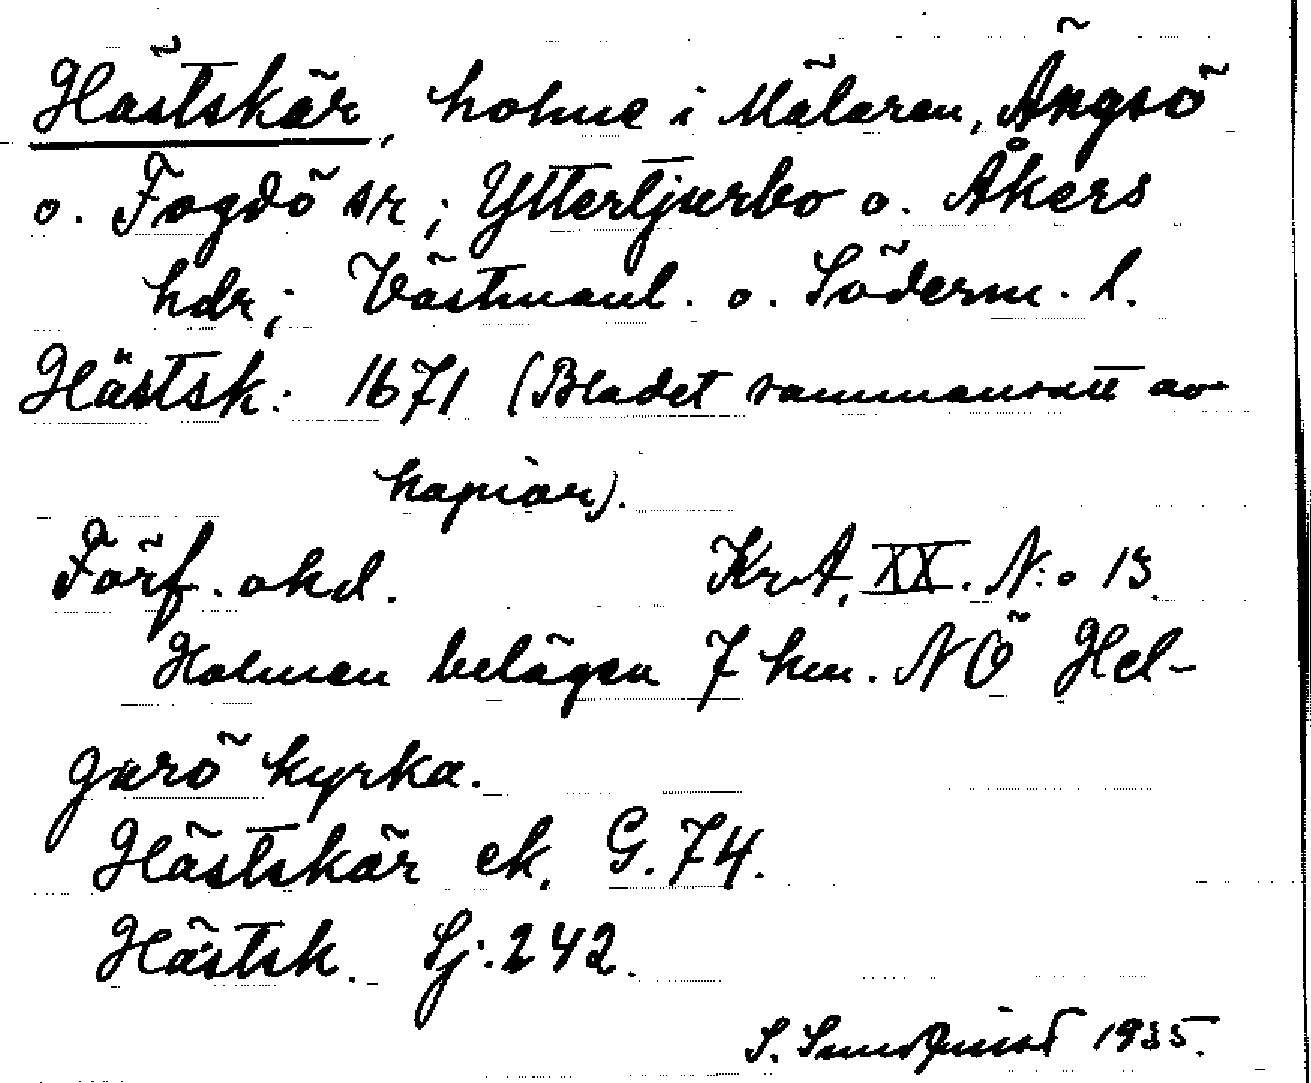 Hästskär, holme i Mälaren, Ängsö
o. Fogdö sn; Yttertjurbo o. Åkers
hdr; Västmanl. o. Söderm. l.
Hästsk: 1671 (Bladet sammansatt av
kopior).
Förf. okd. KrA, XX. N:o 13.
Holmen belägen 7 km. NÖ Hel-
garö kyrka.
Hästskär ek. G. 74.
Hästsk. Sj: 242.
S. Sundquist 1935.